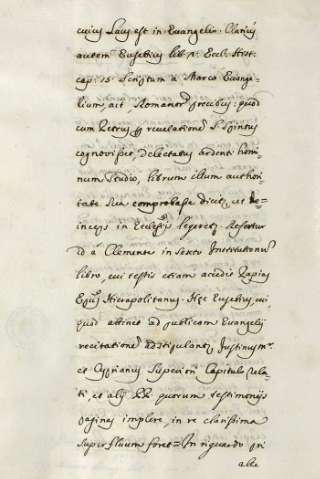 cuius Laus est in Evangelio. Clarius
autem Eusebius lib. 2. Eccl. Hist.
cap. 15. Scriptum a Marco Evange-
lium, ait Romanor precibus: quod
cum Petrus revelatione S. Spiritus
cognovisset, delectatus ardenti homi-
num studio, librum illum authori-
tate sua comprobasse dicit, et de-
inceps in Ecclesijs legeret. Refertur
id a Clemente in sexto Institutionum
libro, cui testis etiam accedit Papias
Epus Hierapolitanus. Hec Eusebius, cui,
quod attinet ad publicam Evangelij
recitatione adstipulant, Justinus M.
et Cyprianus Superiori Capitulo rela-
ti, et alij PP. quorum testimonijs
paginas implere, in re clarissima
superfluum foret = In riguardo poi
alle